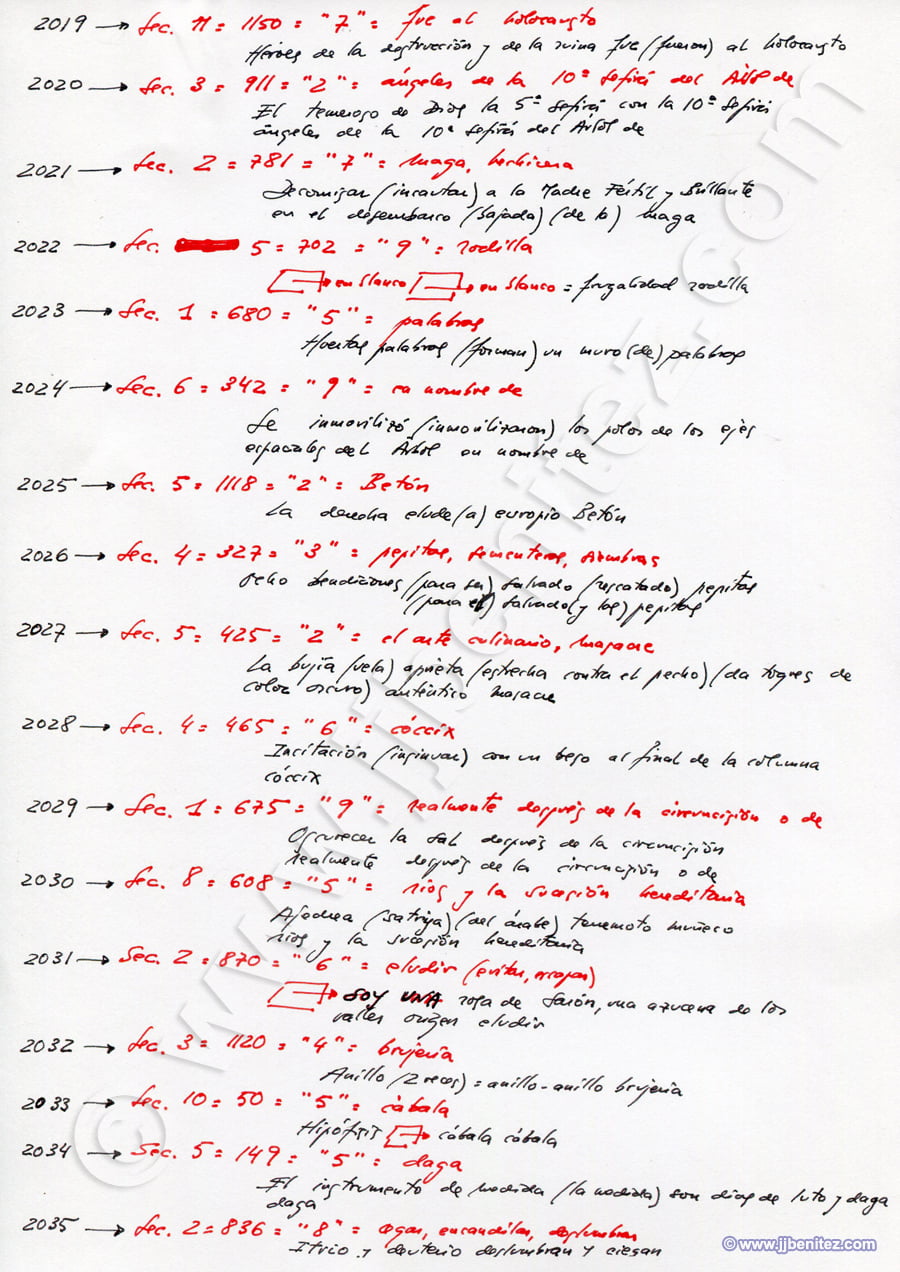 2019 → Sec. 11 = 1150 = "7" = fue al holocausto
Héroes de la destrucción y de la ruina fue (fueron) al holocausto
2020 → Sec. 3 = 911 = "2" = ángeles de la 10ª sefirá del Árbol de
El temeroso de Dios la 5ª sefirá con la 10ª sefirá
ángeles de la 10ª sefirá del Árbol de
2021 → Sec. 2 = 781 = "7" = maga, hechicera
Decomisar (incautar) a la Madre Fértil y Brillante
en el desembarco (bajada) (de la) maga
2022 → Sec. 5 = 702 = "9" = rodilla
→ en blanco → en blanco = frugalidad rodilla
2023 → Sec. 1 = 680 = "5" = palabras
Huertas palabras (forman) un muro (de) palabras
2024 → Sec. 6 = 342 = "9" = en nombre de
Se inmovilizó (inmovilizaron) los polos de los ejes
espaciales del Árbol en nombre de
2025 → Sec. 5 = 1118 = "2" = Betón
La derecha elude (a) europio Betón
2026 → Sec. 4 = 327 = "3" = pepitas, sementeras, siembras
Ocho bendiciones (para ser) salvado (rescatado) pepitas
(para el) salvado (y las) pepitas
2027 → Sec. 5 = 425 = "2" = el arte culinario, masacre
La bujía (vela) aprieta (estrecha contra el pecho) (da toques de
color oscuro) auténtico masacre
2028 → Sec. 4 = 465 = "6" = cóccix
Incitación (insinuar) con un beso al final de la columna
cóccix
2029 → Sec. 1 = 675 = "9" = realmente después de la circuncisión o de
Oscurecer la sal después de la circuncisión
realmente después de la circuncisión o de
2030 → Sec. 8 = 608 = "5" = ríos y la sucesión hereditaria
Ajedrea (satriya) (del árabe) terremoto muñeco
ríos y la sucesión hereditaria
2031 → Sec. 2 = 870 = "6" = eludir (evitar, escapar)
→ SOY UNA rosa de Sarón, una azucena de los
valles origen eludir
2032 → Sec. 3 = 1120 = "4" = brujería
Anillo (2 veces) = anillo-anillo brujería
2033 → Sec. 10 = 50 = "5" = cábala
Hipófisis → cábala cábala
2034 → Sec. 5 = 149 = "5" = daga
El instrumento de medida (la medida) son días de luto y daga
daga
2035 → Sec. 2 = 836 = "8" = cegar, encandilar, deslumbrar
Itrio y deuterio deslumbran y ciegan
© www.jjbenitez.com
© www.jjbenitez.com